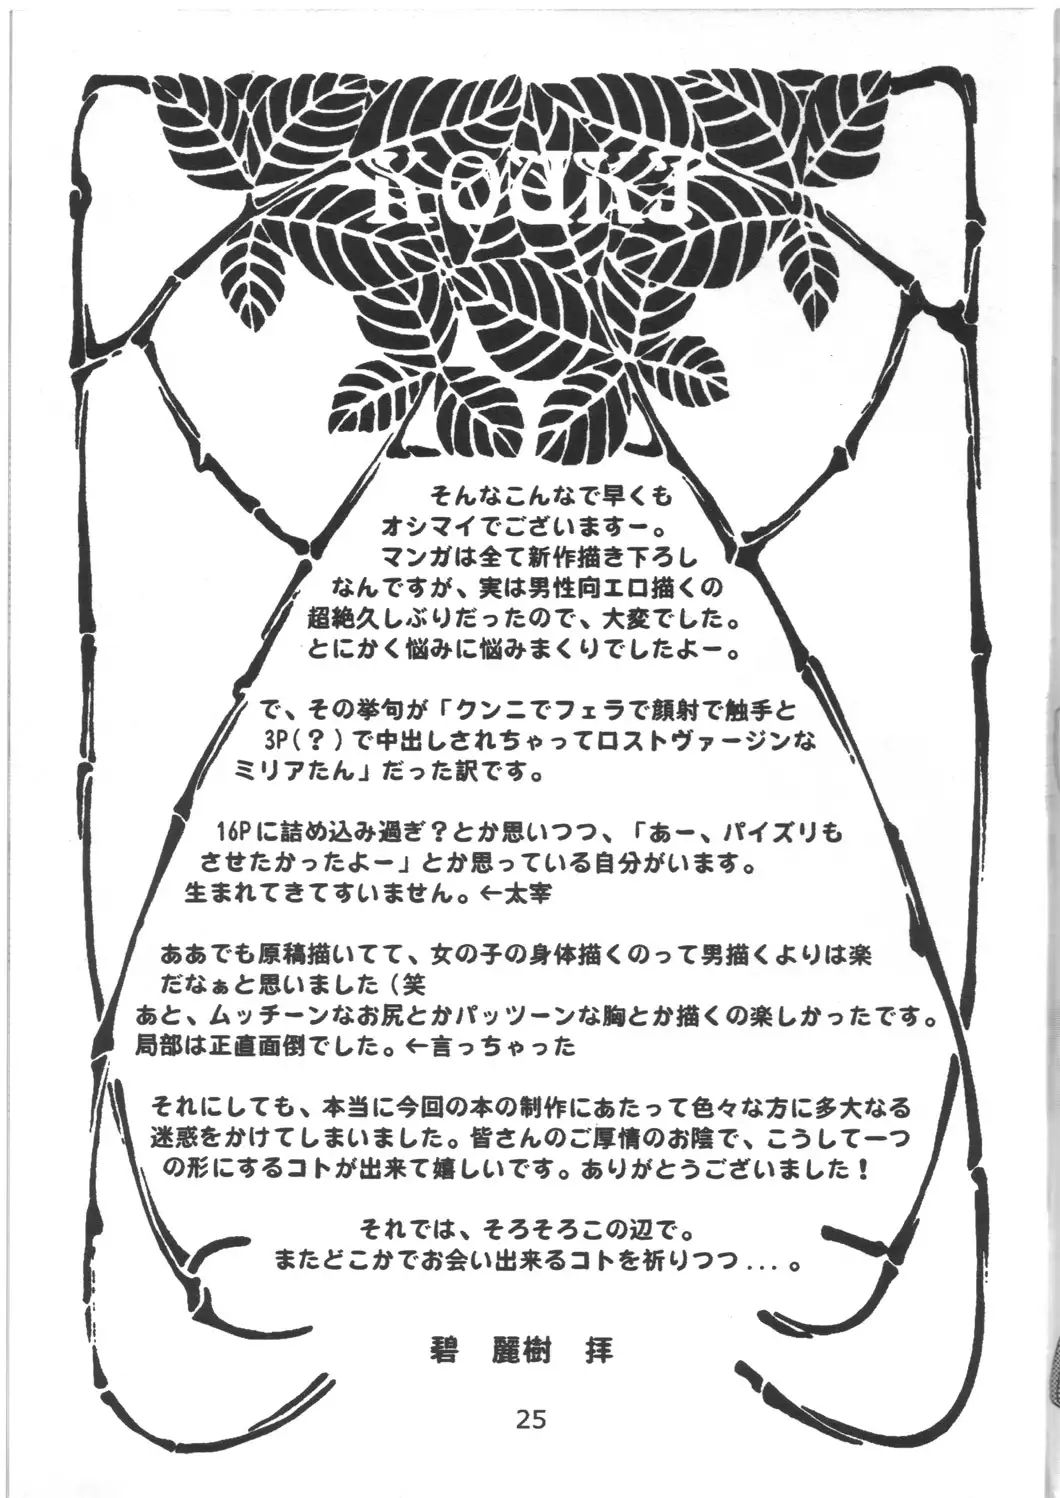 KOUKI
そんなこんなで早くも
オシマイでございますー。
マンガは全て新作描き下ろし
なんですが、実は男性向エロ描くの
超絶久しぶりだったので、大変でした。
とにかく悩みに悩みまくりでしたよー。
で、その挙句が「クンニでフェラで顔射で触手と
3P(?)で中出しされちゃってロストヴァージンな
ミリアたん」だった訳です。
16Pに詰め込み過ぎ?とか思いつつ、「あー、パイズリも
させたかったよー」とか思っている自分がいます。
生まれてきてすいません。←太宰
ああでも原稿描いてて、女の子の身体描くのって男描くよりは楽
だなぁと思いました(笑
あと、ムッチーンなお尻とかパッツーンな胸とか描くの楽しかったです。
局部は正直面倒でした。←言っちゃった
それにしても、本当に今回の本の制作にあたって色々な方に多大なる
迷惑をかけてしまいました。皆さんのご厚情のお陰で、こうして一つ
の形にするコトが出来て嬉しいです。ありがとうございました!
それでは、そろそろこの辺で。
またどこかでお会い出来るコトを祈りつつ...。
碧 麗樹 拝
25